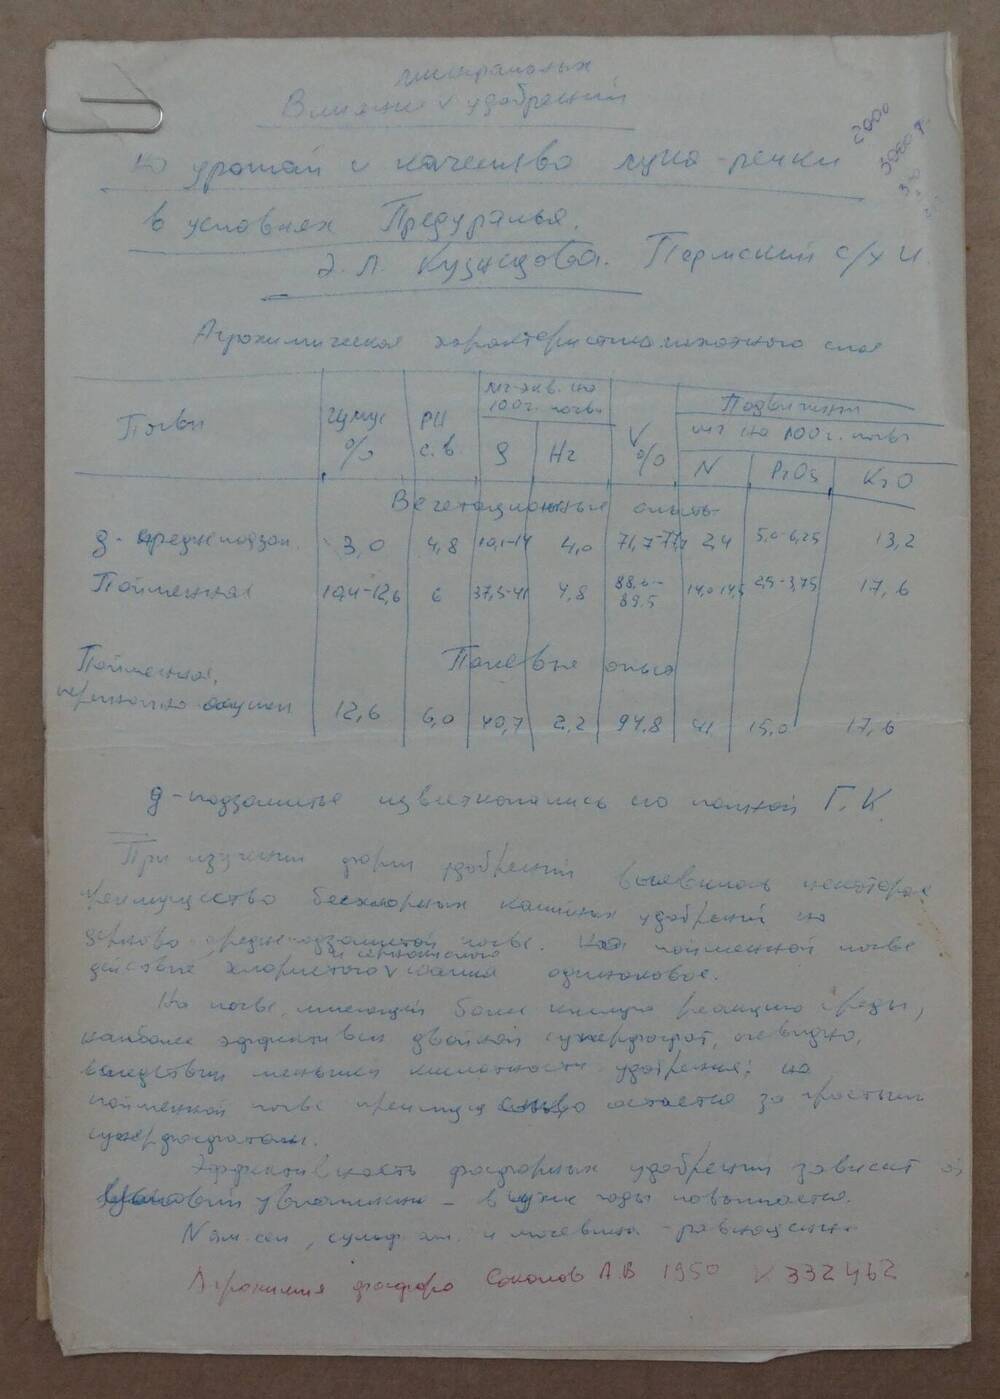 минеральных
Влияние v удобрений
на урожай и качество лука-репки
2000
в условиях Предуралья.
Э. Л. Кузнецова. Пермский с/х И.
Агрохимическая характеристика пахотного слоя
Почвы гумус % PH с.в. мг-экв. на 100 г. почвы S Hг V % Подвижные мг на 100 г. почвы N P2O5 K2O
Вегетационные опыты
д-среднеподзол. 3,0 4,8 10,1-14 4,0 71,7-77,7 2,4 5,0-6,25 13,2
Пойменная 10,4-12,6 6 37,5-41 4,8 88,6-89,5 14,0-14,5 2,5-3,75 17,6
Полевые опыты
Пойменная,
12,6 6,0 40,7 2,2 94,8 41 15,0 17,6
д-подзолистые известковались по полной Г.К.
При изучении форм удобрений выявилось некоторое
преимущество бесхлорных калийных удобрений на
дерново-среднеподзолистой почве. На пойменной почве
действие хлористого v и сернокислого калия одинаковое.
На почве, имеющей более кислую реакцию среды,
наиболее эффективен двойной суперфосфат, очевидно,
вследствии меньшей кислотности удобрения; на
пойменной почве преимущество остается за простым
суперфосфатом.
Эффективность фосфорных удобрений зависит от
условий увлажнения - в сухие годы повышается.
N ам. сел, сульф. ам. и мочевина - равноценны
Агрохимия фосфора Соколов А.В 1950 К 332462